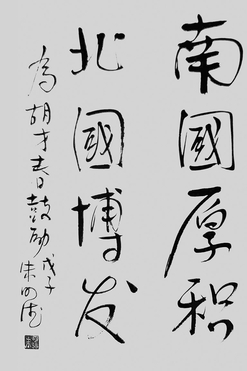 南國厚积
北國博发
為胡才春鼓励
戊子
朱明德